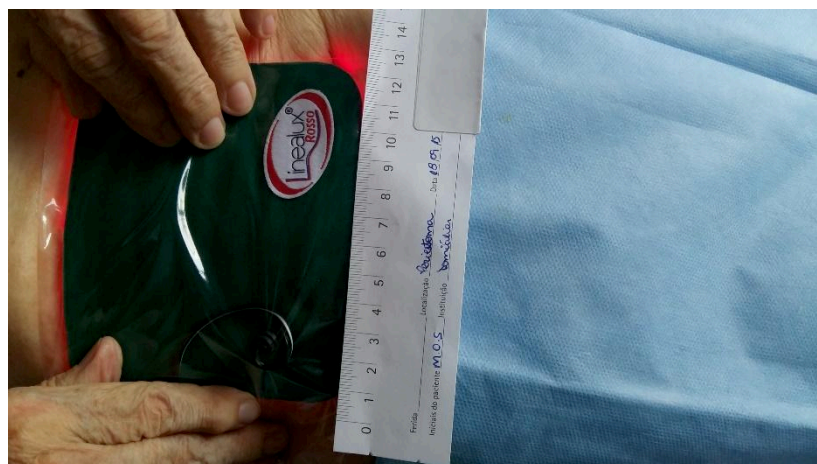 Linealux®
Rosso
0 1 2 3 4 5 6 7 8 9 10 11 12 13 14
Ferida Localização Periestoma Data 18.09.15
Iniciais do paciente M.O.S Instituição